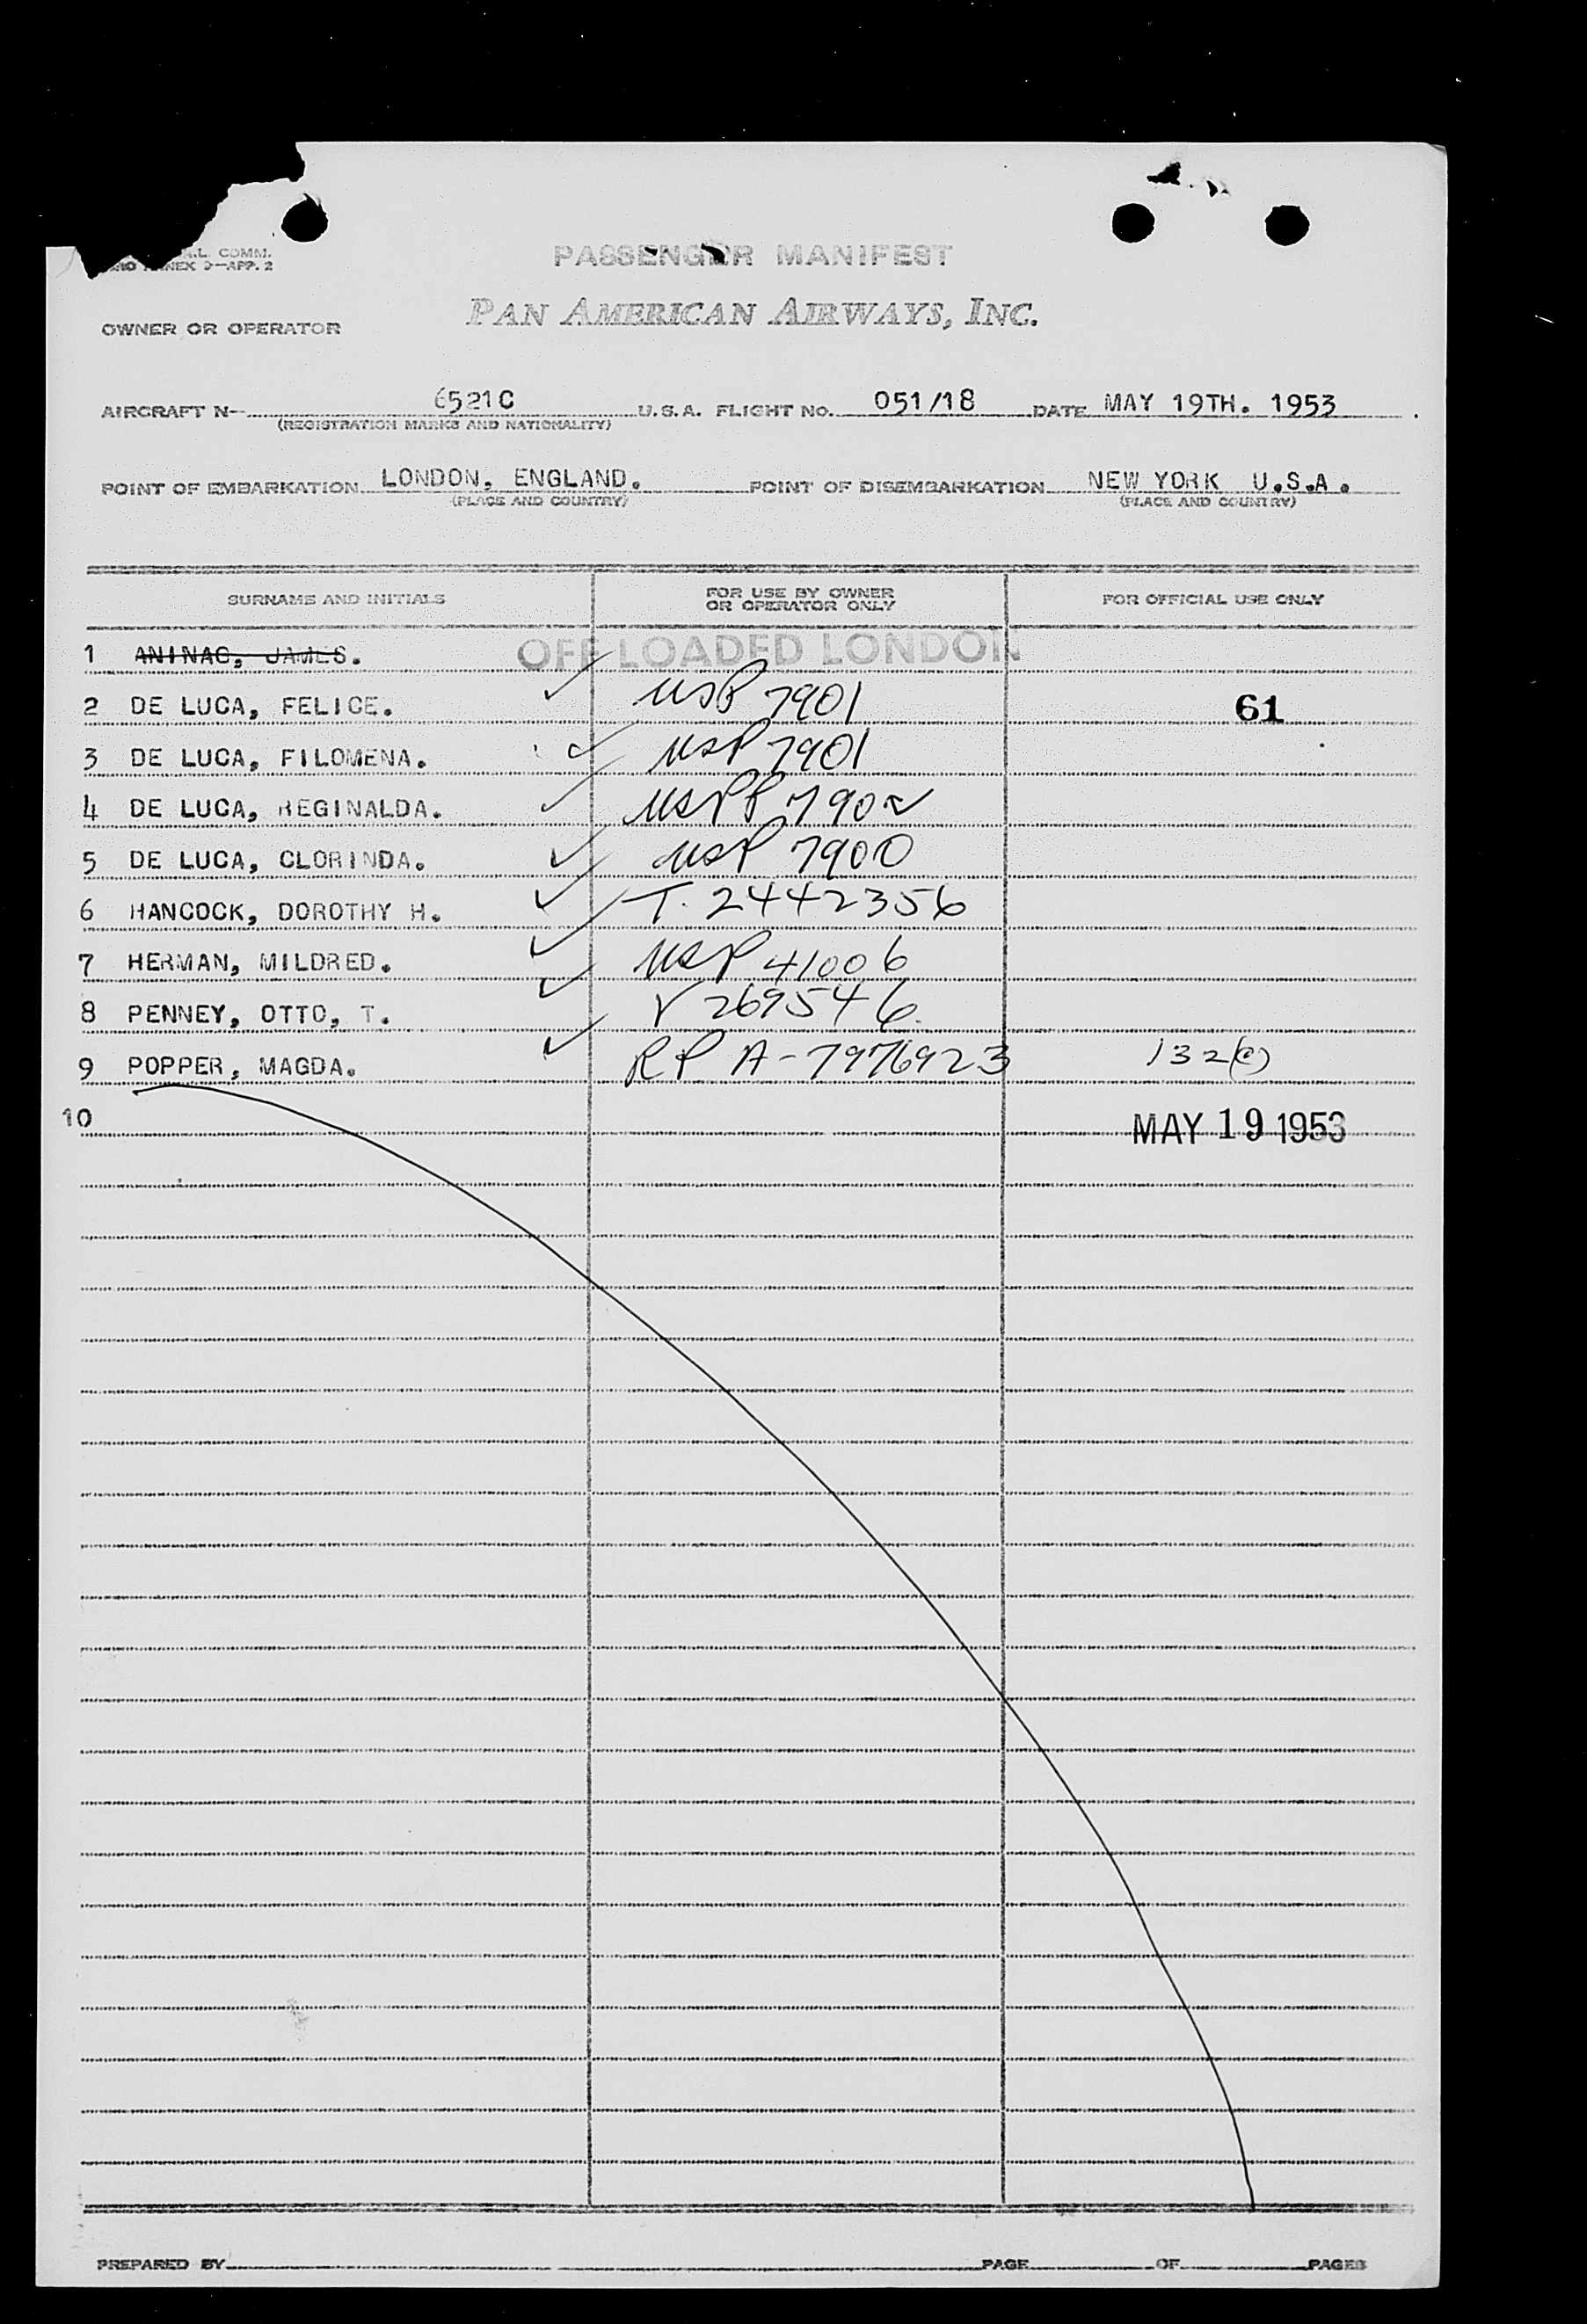 A.L. COMM.
ANNEX 9—APP. 2
PASSENGER MANIFEST
PAN AMERICAN AIRWAYS, INC.
OWNER OR OPERATOR
AIRCRAFT N- 6521C U.S.A. FLIGHT NO. 051/18 DATE MAY 19TH. 1953
(REGISTRATION MARKS AND NATIONALITY)
POINT OF EMBARKATION LONDON, ENGLAND. POINT OF DISEMBARKATION NEW YORK U.S.A.
(PLACE AND COUNTRY) (PLACE AND COUNTRY)
SURNAME AND INITIALS FOR USE BY OWNER OR OPERATOR ONLY FOR OFFICIAL USE ONLY
1 ANINAC, JAMES. OFF LOADED LONDON
2 DE LUCA, FELICE. USP 7901 61
3 DE LUCA, FILOMENA. USP 7901
4 DE LUCA, REGINALDA. USPP 7902
5 DE LUCA, CLORINDA. USP 7900
6 HANCOCK, DOROTHY H. T. 2442356
7 HERMAN, MILDRED. USP 41006
8 PENNEY, OTTO, T. V 269546
9 POPPER, MAGDA. RP A-7976923 132(e)
10 MAY 19 1953
PREPARED BY PAGE OF PAGES